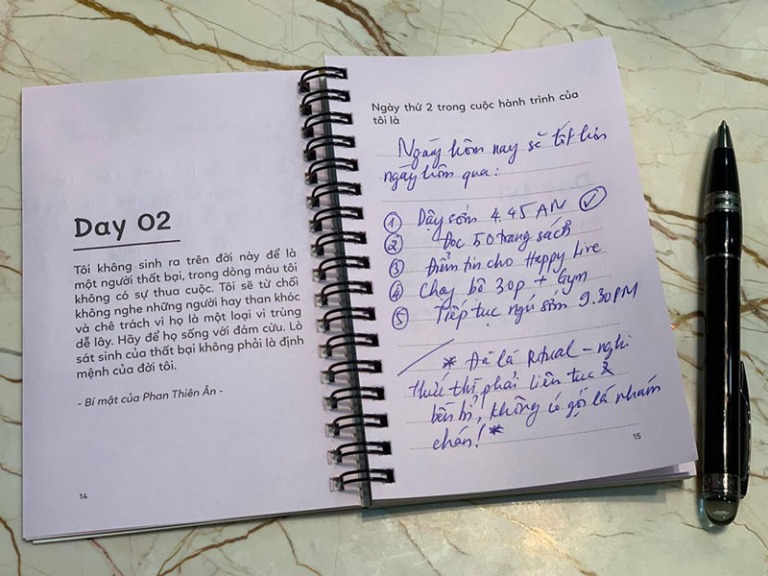 Day 02
Tôi không sinh ra trên đời này để là
một người thất bại, trong dòng máu tôi
không có sự thua cuộc. Tôi sẽ từ chối
không nghe những người hay than khóc
và chê trách vì họ là một loại vi trùng
dễ lây. Hãy để họ sống với đám cừu. Lò
sát sinh của thất bại không phải là định
mệnh của đời tôi.
- Bí mật của Phan Thiên Ân -
14
Ngày thứ 2 trong cuộc hành trình của
tôi là
Ngày hôm nay sẽ tốt hơn
ngày hôm qua:
① Dậy sớm 4.45 AM
② Đọc 50 trang sách
③ Điểm tin cho Happy Live
④ Chạy bộ 30p + Gym
⑤ Tiếp tục ngủ sớm 9.30PM
* Đã là Ritual - nghi
thức thì phải liên tục &
bền bỉ, không có gọi là nhàm
chán! *
15